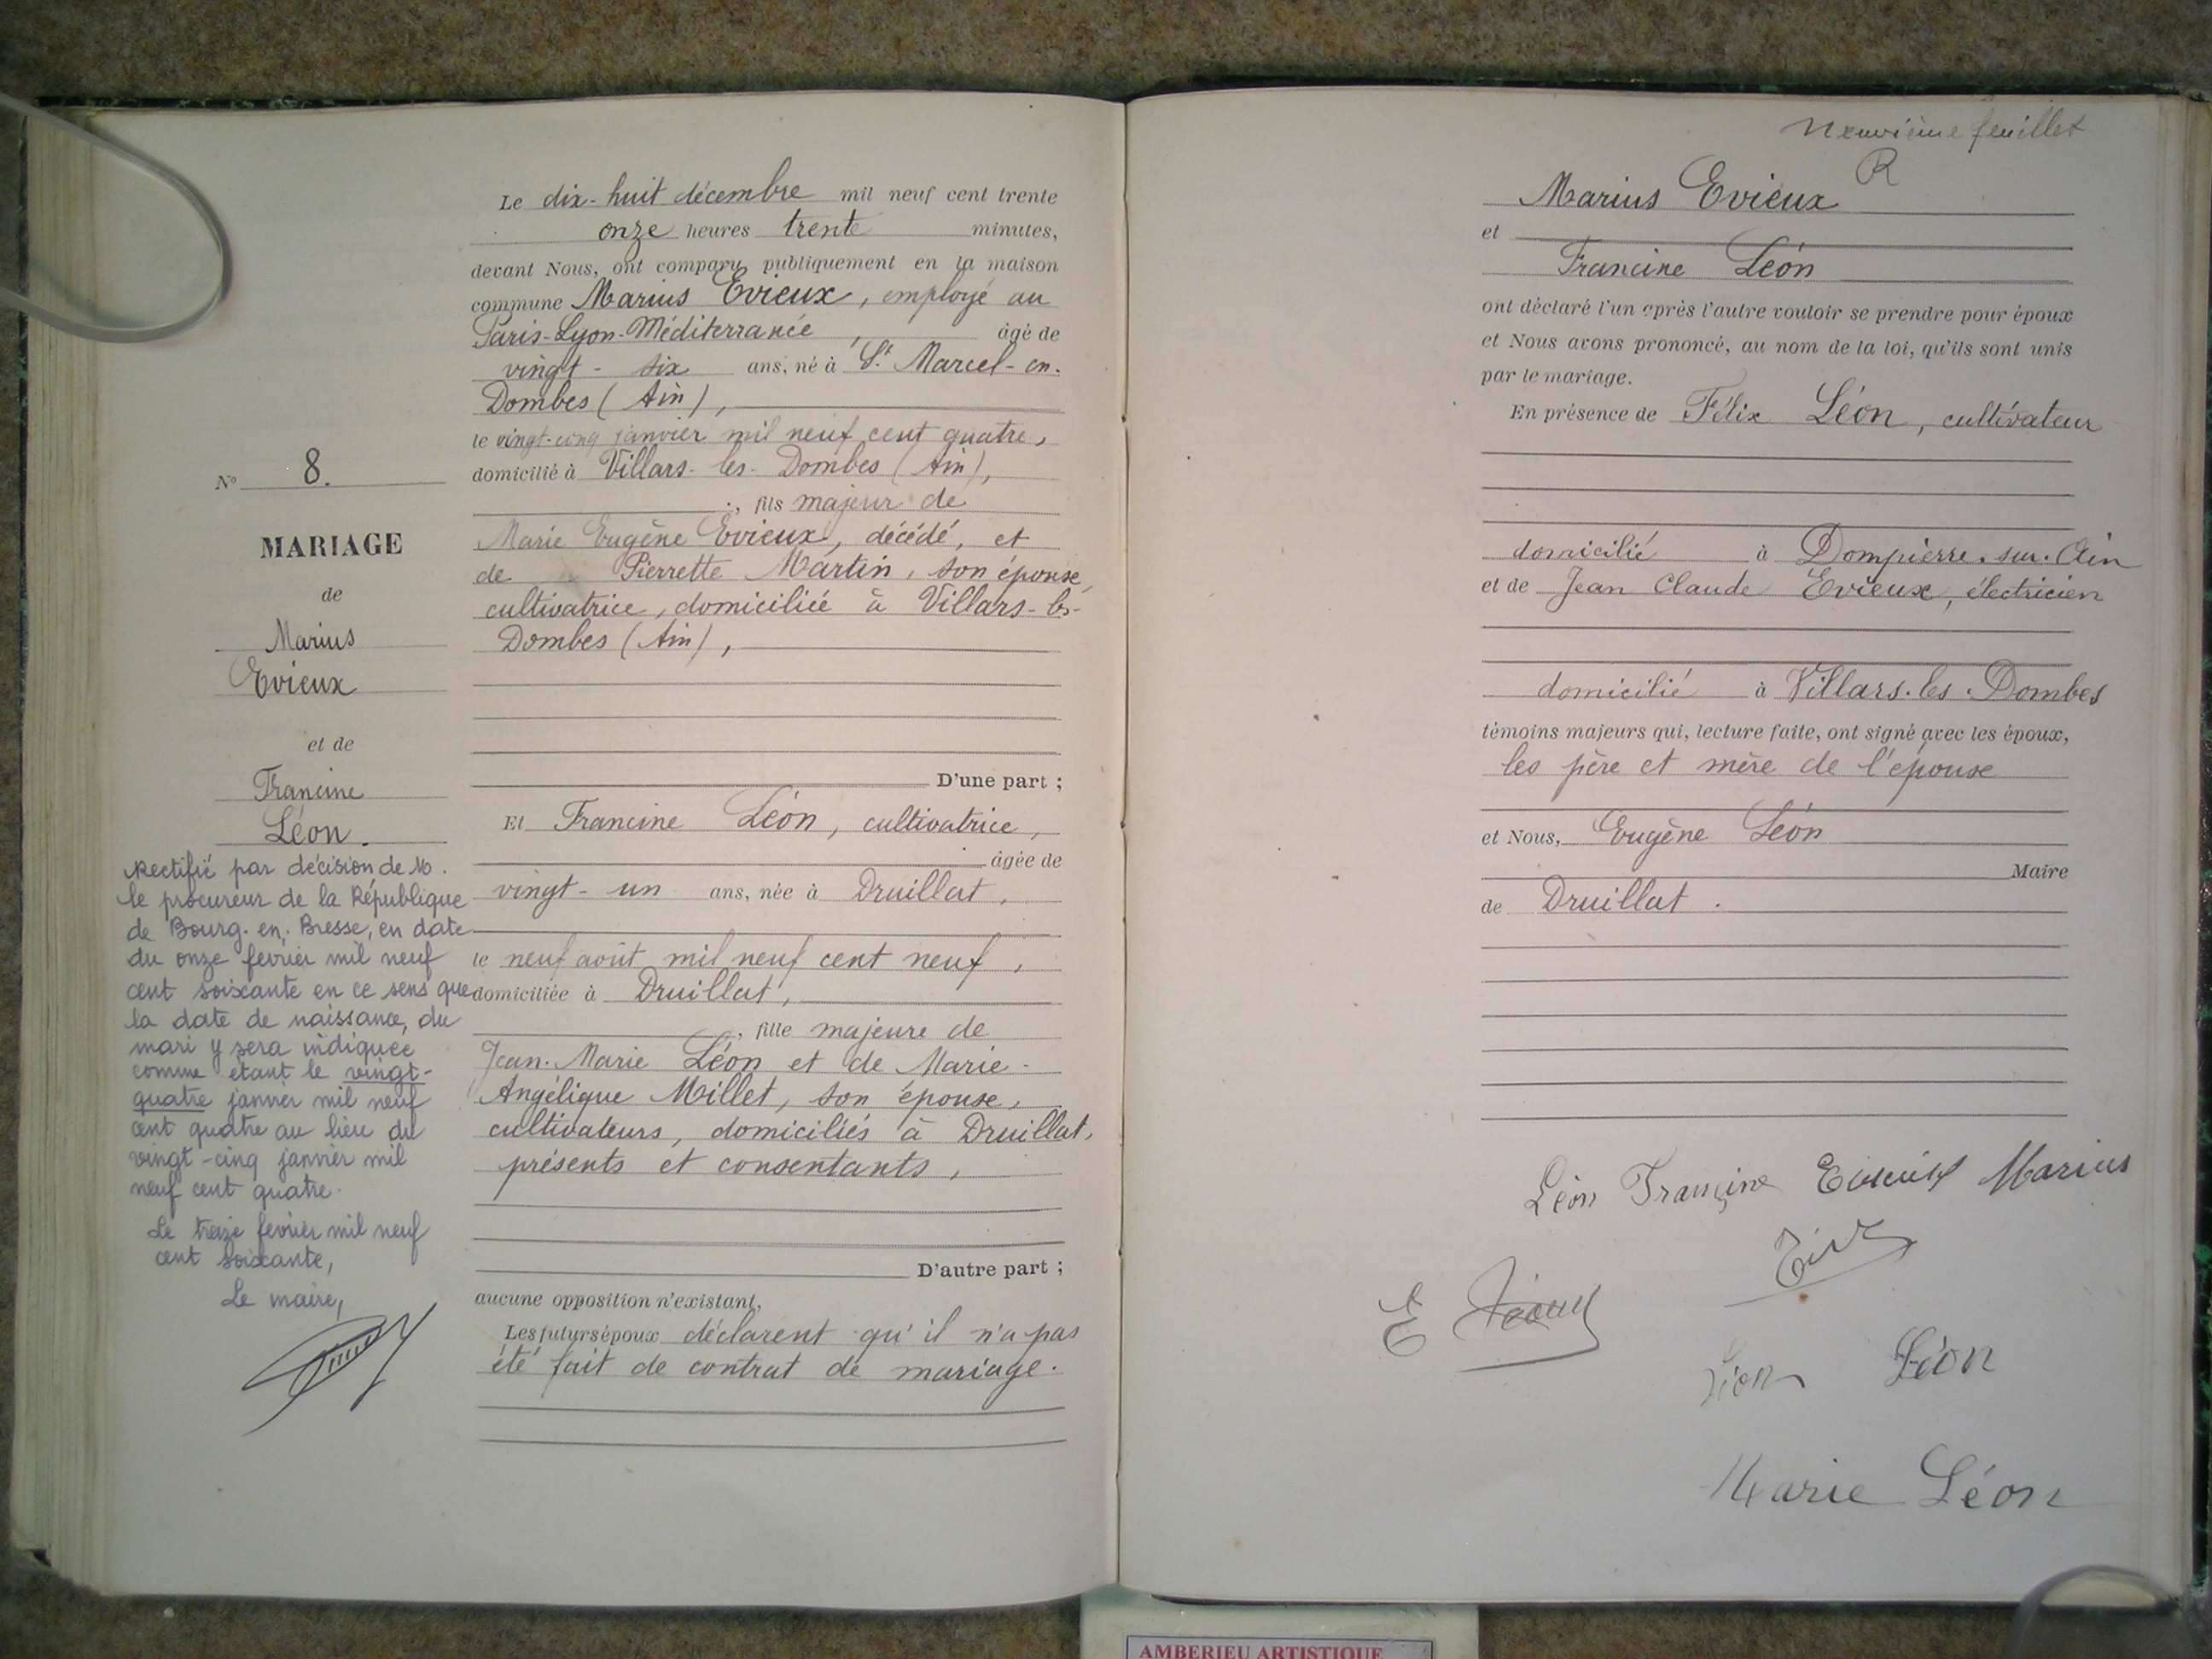 Le dix-huit décembre mil neuf cent trente
onze heures trente minutes,
devant Nous, ont comparu publiquement en la maison
commune Marius Evieux, employé au
Paris-Lyon-Méditerranée, âgé de
vingt-six ans, né à St Marcel-en-
Dombes (Ain),
le vingt-cinq janvier mil neuf cent quatre,
domicilié à Villars-les-Dombes (Ain),
, fils majeur de
Marie Eugène Evieux, décédé, et
de Pierrette Martin, son épouse,
cultivatrice, domiciliée à Villars-les-
Dombes (Ain),
D'une part ;
Et Francine Léon, cultivatrice,
âgée de
vingt-un ans, née à Druillat,
le neuf août mil neuf cent neuf,
domiciliée à Druillat,
, fille majeure de
Jean-Marie Léon et de Marie-
Angélique Millet, son épouse,
cultivateurs, domiciliés à Druillat,
présents et consentants,
D'autre part ;
aucune opposition n'existant,
Les futurs époux déclarent qu'il n'a pas
été fait de contrat de mariage.
No 8.
MARIAGE
de
Marius
Evieux
et de
Francine
Léon.
Rectifié par décision de M.
le procureur de la République
de Bourg-en-Bresse, en date
du onze février mil neuf
cent soixante en ce sens que
la date de naissance, du
mari y sera indiquée
comme étant le vingt-
quatre janvier mil neuf
cent quatre au lieu du
vingt-cinq janvier mil
neuf cent quatre.
Le treize février mil neuf
cent soixante,
Le maire,
Neuvième feuillet
R
Marius Evieux
et
Francine Léon
ont déclaré l'un après l'autre vouloir se prendre pour époux
et Nous avons prononcé, au nom de la loi, qu'ils sont unis
par le mariage.
En présence de Félix Léon, cultivateur
domicilié à Dompierre-sur-Ain
et de Jean Claude Evieux, électricien
domicilié à Villars-les-Dombes
témoins majeurs qui, lecture faite, ont signé avec les époux,
les père et mère de l'épouse
et Nous, Eugène Léon
Maire
de Druillat.
Léon Francine Evieux Marius
E Léon
Léon Léon
Marie Léon
AMBERIEU ARTISTIQUE